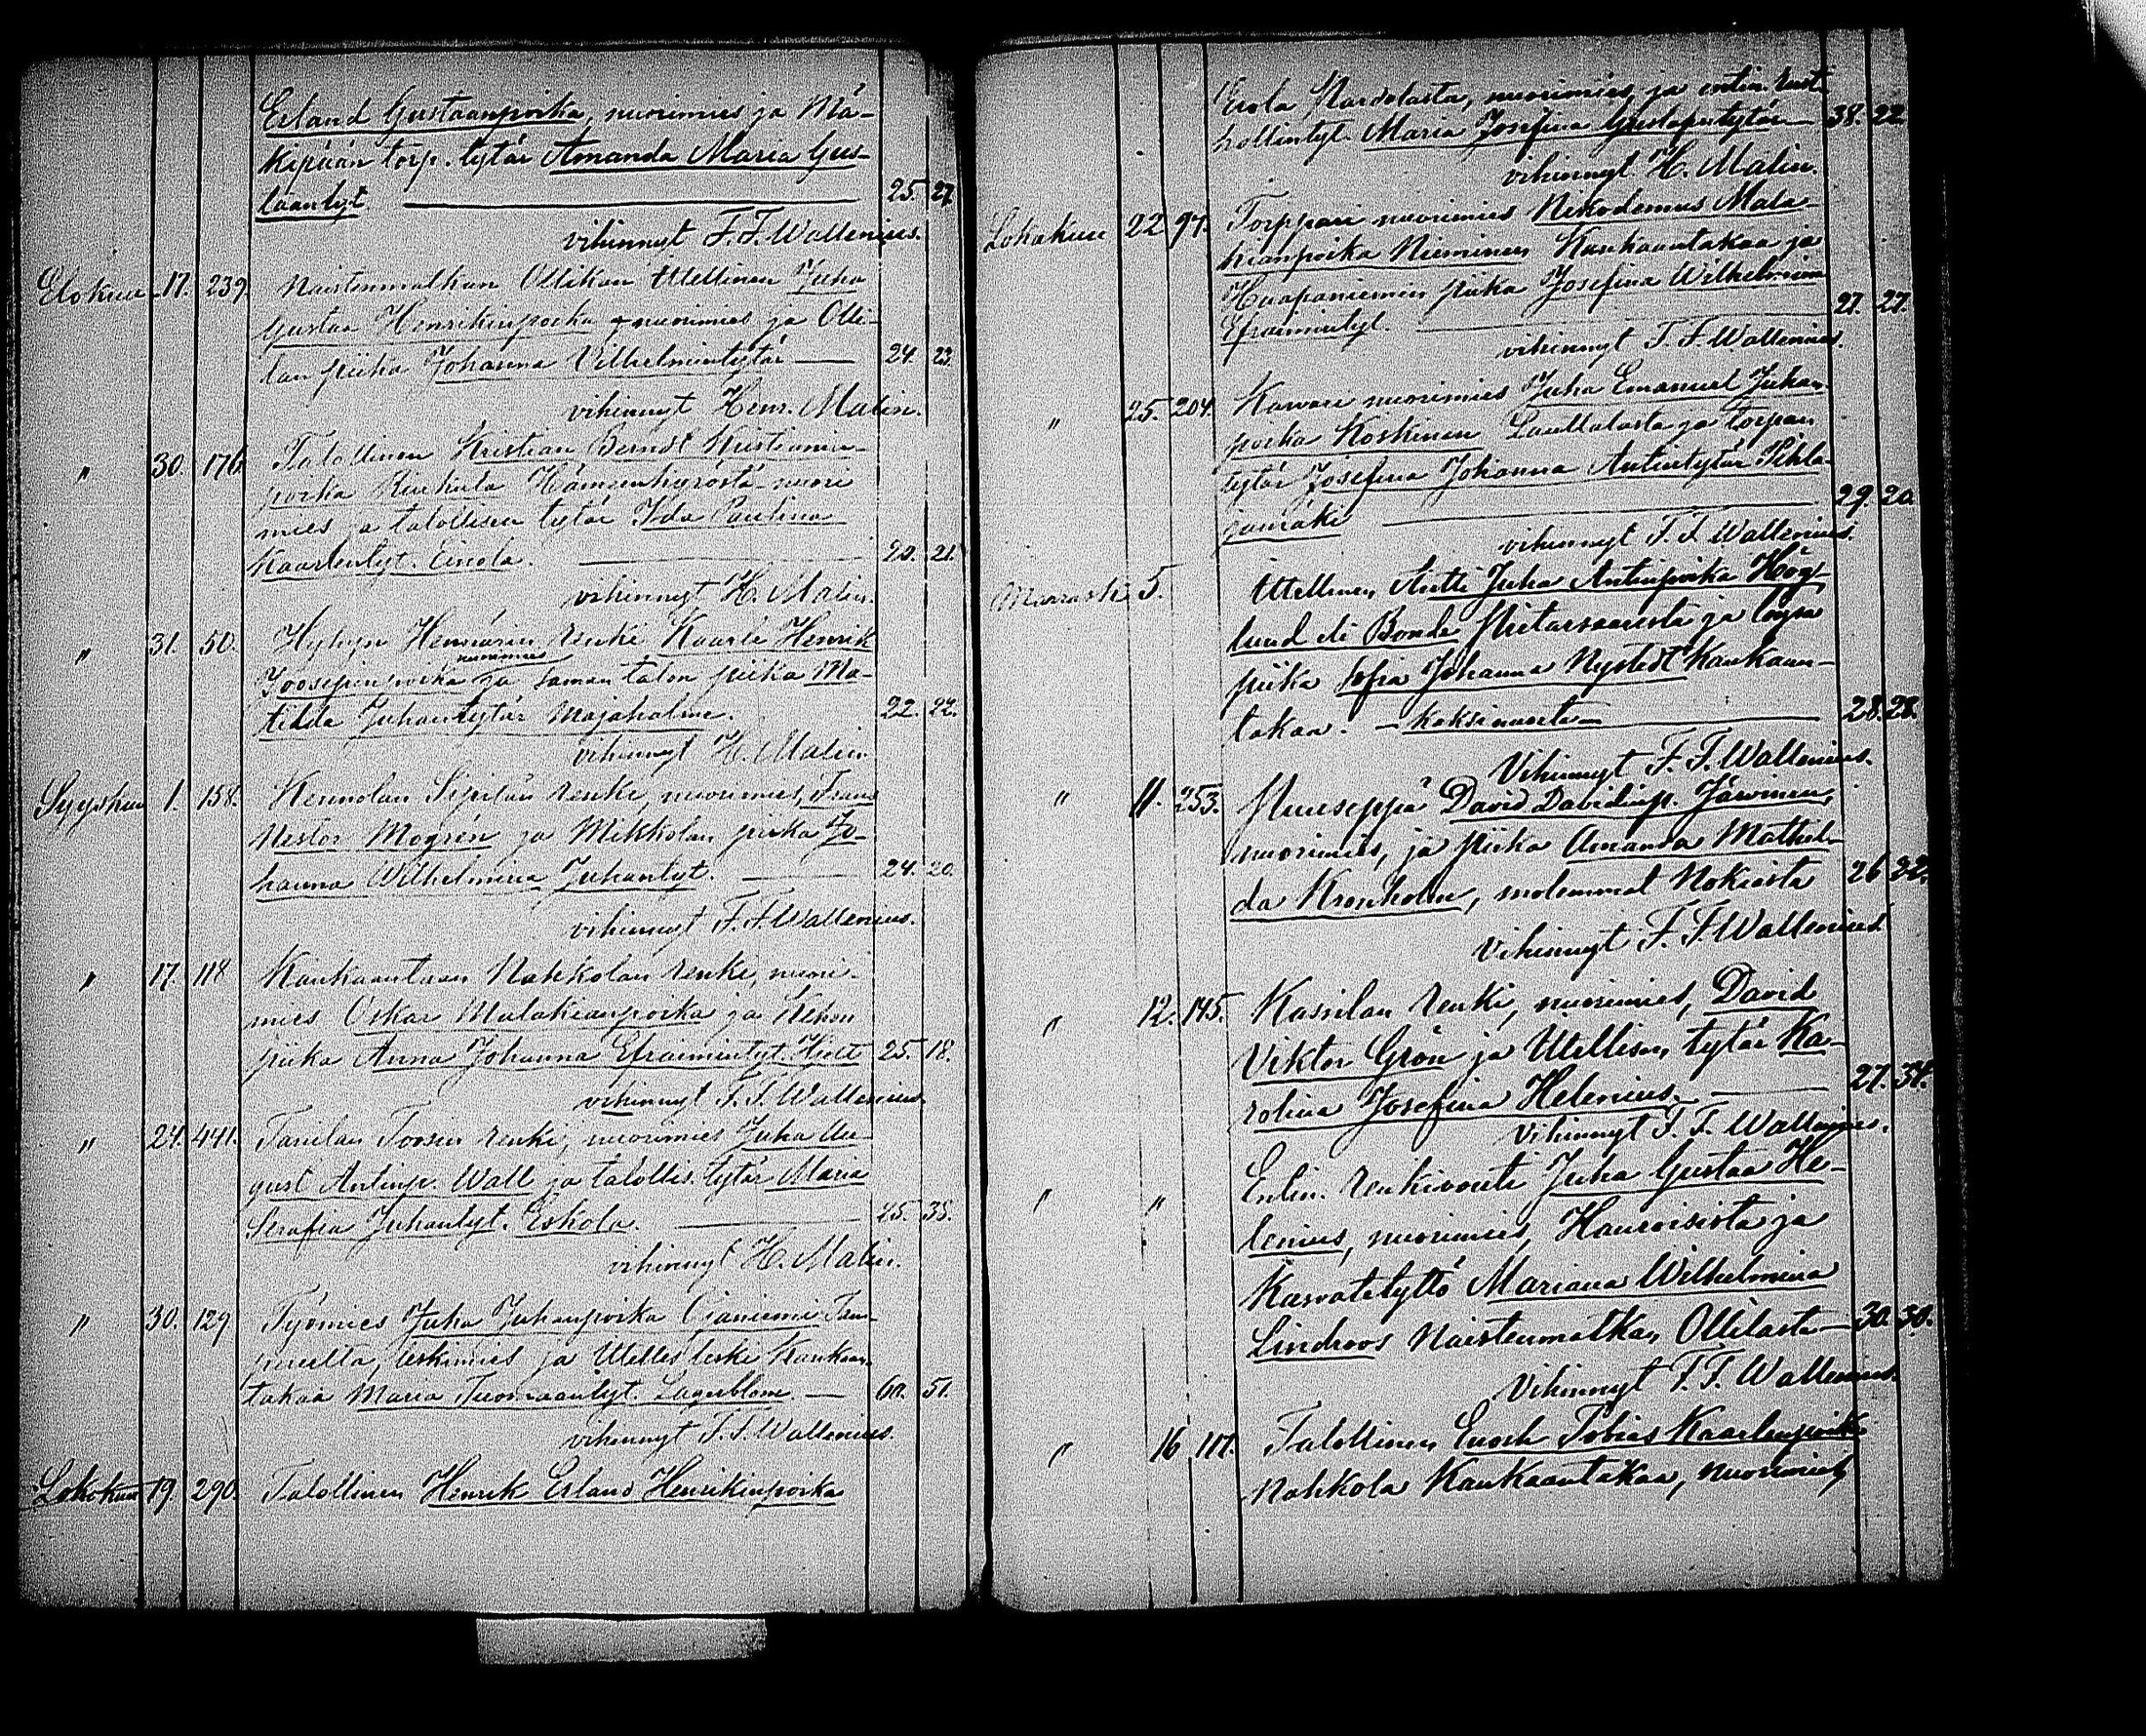 Erland Gustaanpoika, nuorimies ja Mä-
kipään torp. tytär Amanda Maria Gus-
taantyt. 25. 27.
vihinnyt F. F. Wallenius.
Elokuu 17. 239. Naistenmatkan Ollikan Itellinen Juha
Gustaa Henrikinpoika nuorimies ja Olli-
lan piika Johanna Vilhelmintytär 24. 23.
vihinnyt Henr. Malin.
" 30. 176. Talollinen Kristian Berndt Kristianin-
poika Hämeenkyröstä nuori
mies ja talollisen tytär Ida Paulina
Kaarlentyt. Einola. 20. 21.
vihinnyt H. Malin.
" 31. 50. Hyhyn Hennärin renki Kaarle Henrik
nuorimies
Joosepinpoika ja saman talon piika Ma-
tilda Juhantytär Majaholme. 22. 22.
vihinnyt H. Malin
Syyskuu 1. 158. Kennolan Sipilän renki, nuorimies, Frans
Nestor Mogrén ja Mikkolan piika Jo-
hanna Wilhelmina Juhantyt. 24. 20.
vihinnyt F. F. Wallenius.
" 17. 118 Kankaantaan Nahkolan renki, nuori-
mies Oskar Malakianpoika ja
piika Anna Johanna Efraimintyt. Hjelt 25. 18.
vihinnyt F. F. Wallenius
" 24. 441. Tanilan Toosen renki, nuorimies Juha Au-
gust Antinp. Wall ja talollis. tytär Maria
Serafia Juhantyt. Eskola. 25. 35.
vihinnyt H. Malin.
" 30. 129 Työmies Juha Juhanpoika Ojaniemi Tam-
pereelta, leskimies ja Itellis leski Kankaan-
takaa Maria Tuomaantyt. Lagerblom 60. 51.
vihinnyt F. F. Wallenius.
Lokakuu 19. 290. Talollinen Henrik Erland Henrikinpoika
Erola Mardolasta, nuorimies ja entin. rust-
hollintyt. Maria Josefina Gustafintytär 38. 22
vihinnyt H. Malin.
Lokakuu 22 97. Torppari nuorimies Nikodemus Mala-
kianpoika Nieminen Kankaantakaa ja
Haapaniemen piika Josefina Wilhelmina
Efraimintyt. 27. 27.
vihinnyt F. F. Wallenius.
" 25. 204. nuorimies Juha Emanuel Juhan-
poika Koskinen Lauttalasta ja torpan
tytär Josefina Johanna Antintytär Pihla-
jamäki 29. 20.
vihinnyt F. F. Wallenius.
Marrask. 5. Itellinen Antti Juha Antinpoika Hög-
lund eli Bonde Pitarsaaresta ja loysa
piika Sofia Johanna Nystedt Kankaan-
takaa. kaksinuorta 28. 28.
Vihinnyt F. F. Wallenius.
" 11. 253. Muuseppä David Davidinp. Järvinen,
nuorimies, ja piika Amanda Mathil-
da Kronholm, molemmat Nokiasta 26 22.
Vihinnyt F. F. Wallenius.
" 12. 145. Kassilan renki, nuorimies, David
Viktor Grön ja Itellisen tytär Ka-
rolina Josefina Helenius. 27. 34.
Vihinnyt F. F. Wallenius.
" " Entin. renkivouti Juha Gustaa He-
lenius, nuorimies, Hauroisista ja
Kasvatetyttö Mariana Wilhelmina
Lindroos Naistenmatkan Ollilasta 30. 30.
Vihinnyt F. F. Wallenius.
" 16 117. Talollinen Enoch Tobias Kaarlenpoika
Nahkola Kankaantakaa, nuorimies,